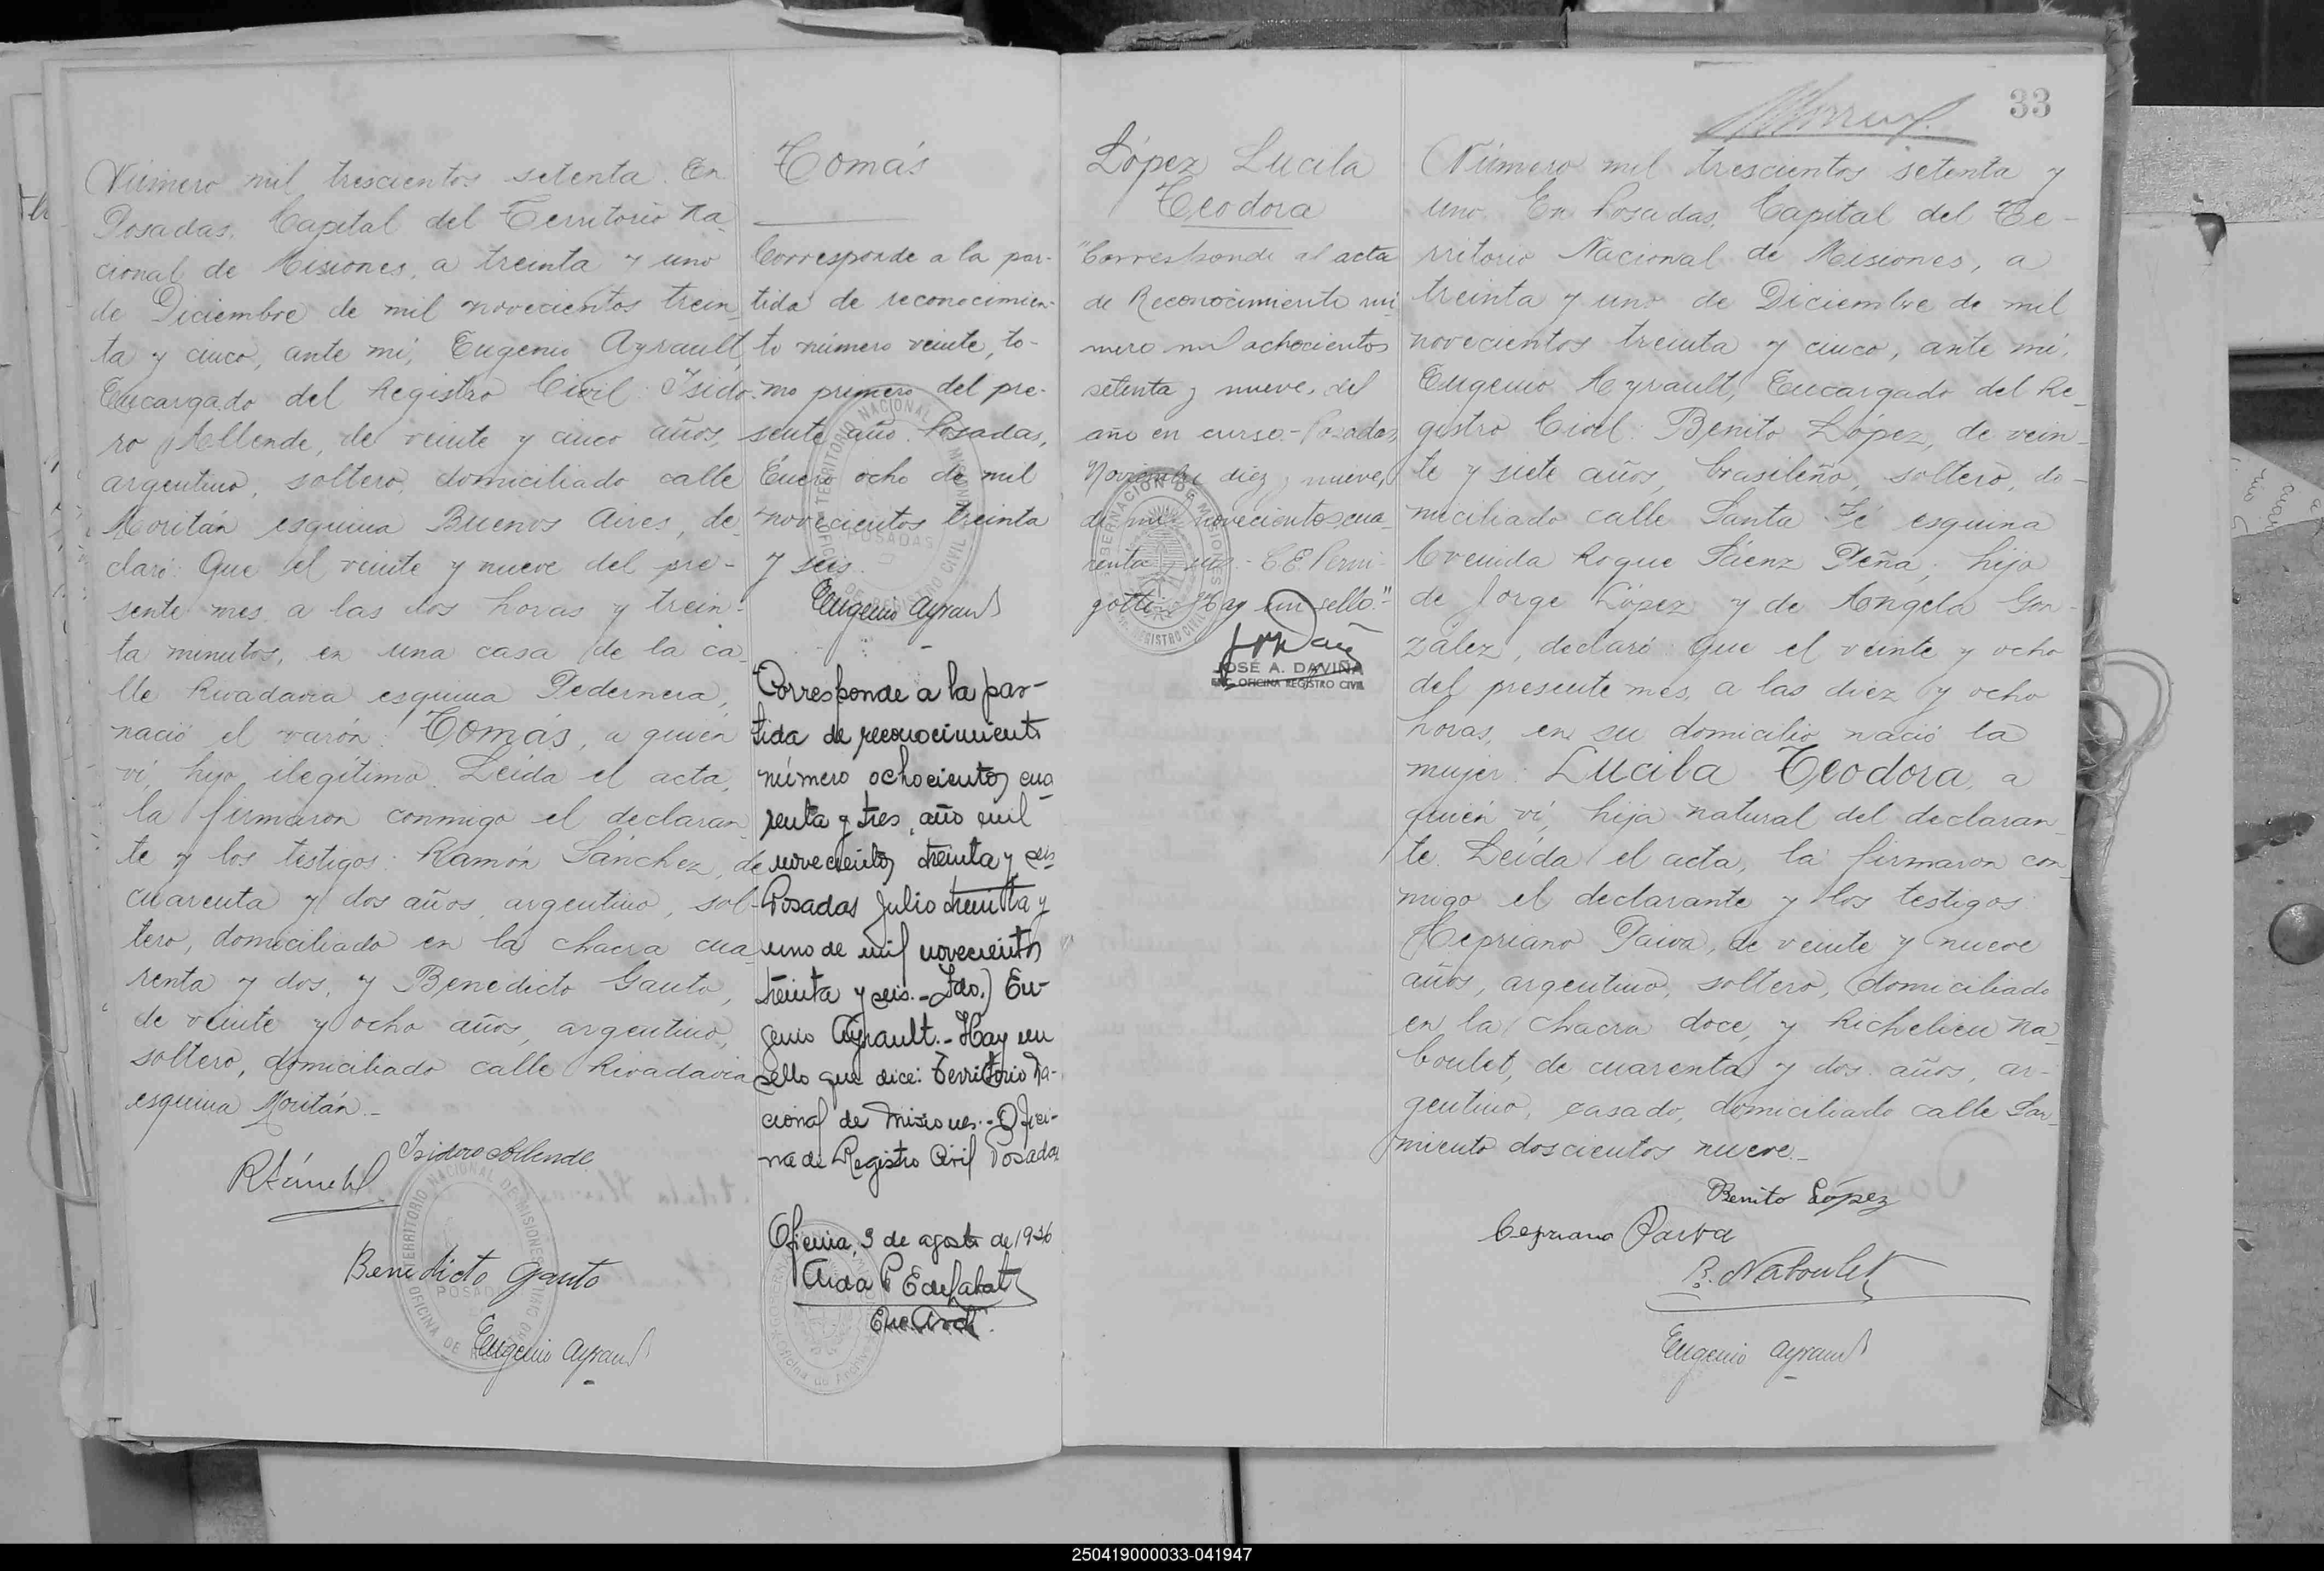 Número mil trescientos setenta. En
Posadas, Capital del Territorio Na-
cional de Misiones, a treinta y uno
de Diciembre de mil novecientos trein
ta y cinco, ante mí, Eugenio Ayrault,
Encargado del Registro Civil: Isido-
ro Allende, de veinte y cinco años,
argentino, soltero, domiciliado calle
Moritán esquina Buenos Aires, de-
claró: Que el veinte y nueve del pre-
sente mes, a las dos horas y trein-
ta minutos, en una casa de la ca-
lle Rivadavia esquina Pedernera,
nació el varón: Tomás, a quien
ví, hijo ilegítimo. Leída el acta,
la firmaron conmigo el declaran
te y los testigos: Ramón Sánchez, de
cuarenta y dos años, argentino, sol-
tero, domiciliado en la chacra cua
renta y dos, y Benedicto Gauto,
de veinte y ocho años, argentino,
soltero, domiciliado calle Rivadavia
esquina Moritán.-
Isidoro Allende
Benedicto Gauto
Eugenio Ayrault
TERRITORIO NACIONAL DE MISIONES
OFICINA DE REGISTRO CIVIL
POSADAS
Tomás
Corresponde a la par-
tida de reconocimien-
to número veinte, to-
mo primero del pre-
sente año. Posadas,
Enero ocho de mil
novecientos treinta
y seis.
Eugenio Ayrault
TERRITORIO NACIONAL DE MISIONES
OFICINA DE REGISTRO CIVIL
POSADAS
Corresponde a la par-
tida de reconocimiento
número ochocientos cua
renta y tres, año mil
novecientos treinta y seis
Posadas Julio treinta y
uno de mil novecientos
treinta y seis.- Fdo.) Eu-
genio Ayrault.- Hay un
sello que dice: Territorio Na-
cional de Misiones.- Ofici-
na de Registro Civil Posadas
Oficina, 3 de agosto de 1936
Aida P
López Lucila
Teodora
"Corresponde al acta
de Reconocimiento nú
mero mil ochocientos
setenta y nueve, del
año en curso.- Posadas,
Noviembre diez y nueve,
de mil novecientos cua-
renta y uno.- C.E. Permi-
gotti.- Hay un sello."
GOBERNACIÓN DE MISIONES
REGISTRO CIVIL
JOSÉ A. DAVIÑA
ENC. OFICINA REGISTRO CIVIL
33
Número mil trescientos setenta y
uno. En Posadas, Capital del Te-
rritorio Nacional de Misiones, a
treinta y uno de Diciembre de mil
novecientos treinta y cinco, ante mí,
Eugenio Ayrault, Encargado del Re-
gistro Civil: Benito López, de vein-
te y siete años, brasileño, soltero, do-
miciliado calle Santa Fé esquina
Avenida Roque Sáenz Peña, hijo
de Jorge López y de Angela Gon-
zález, declaró: Que el veinte y ocho
del presente mes, a las diez y ocho
horas, en su domicilio, nació la
mujer: Lucila Teodora, a
quién ví, hija natural del declaran
te. Leída el acta, la firmaron con
migo el declarante y los testigos:
Cepriano Paiva, de veinte y nueve
años, argentino, soltero, domiciliado
en la chacra doce, y Richelieu Na
boulet, de cuarenta y dos años, ar-
gentino, casado, domiciliado calle Sar
miento doscientos nueve.-
Benito López
Cepriano Paiva
R. Naboulet
Eugenio Ayrault
250419000033-041947